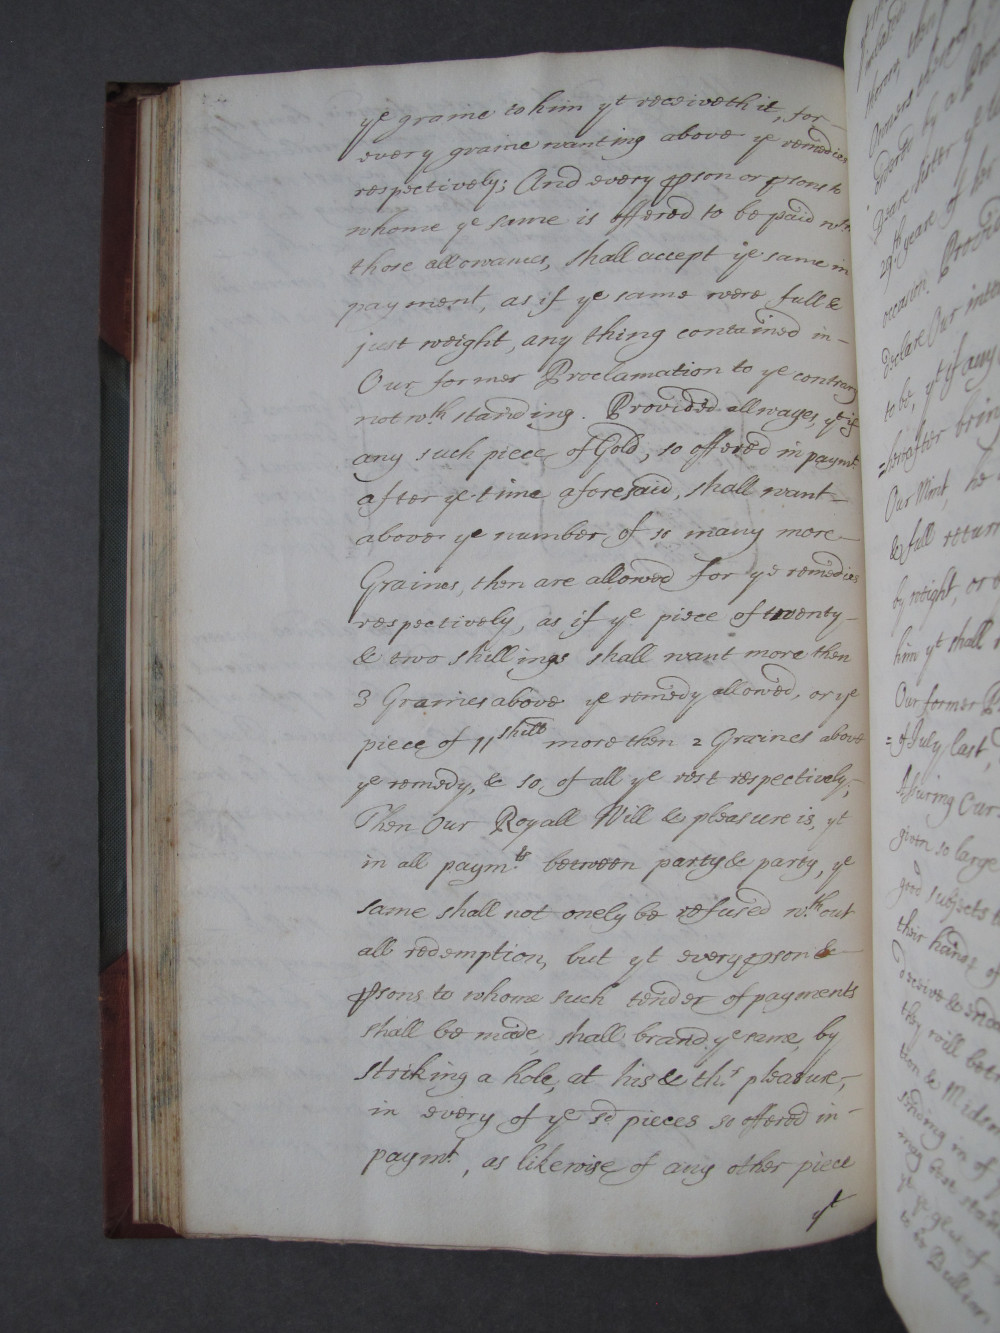 ye graine to him yt receiveth it, for-
every graine wanting above ye remedies
respectively; And every pson or psons to
whome ye same is offered to be paid wth
those allowances, shall accept ye same in
payment, as if ye same were full &
just weight, any thing contained in-
Our former Proclamation to ye contrary
notwth standing. Provided allwayes, yt if
any such piece of Gold, so offered in paymt
after ye time aforesaid, shall want-
above ye number of so many more-
Graines, then are allowed for ye remedies
respectively, as if ye piece of twenty-
& two shillings shall want more then
3 Graines above ye remedy allowed, or ye
piece of 11 shill more then 2 Graines above
ye remedy, & so, of all ye rest respectively;
Then Our Royall Will & pleasure is, yt
in all paymts between party & party, ye
same shall not onely be refused wthout
all redemption, but yt every pson &
psons to whome such tender of payments
shall be made, shall brand ye same, by
striking a hole, at his & thr pleasure,-
in every of ye sd pieces so offered in-
paymt, as likewise of any other piece
yt
Owners thereof,
by a
Deare Sister ye
29th yeare of her
occasion. Provided
declare Our
to be, yt if any
=hereafter bring
Our Mint, he
& full return
by weight, or
him yt shall
Our former
=of July last,
Assuring Our
given so large
good subjects
their hands of
deceive &
they will
tion &
sending in of
may
ye
to be Bullion,